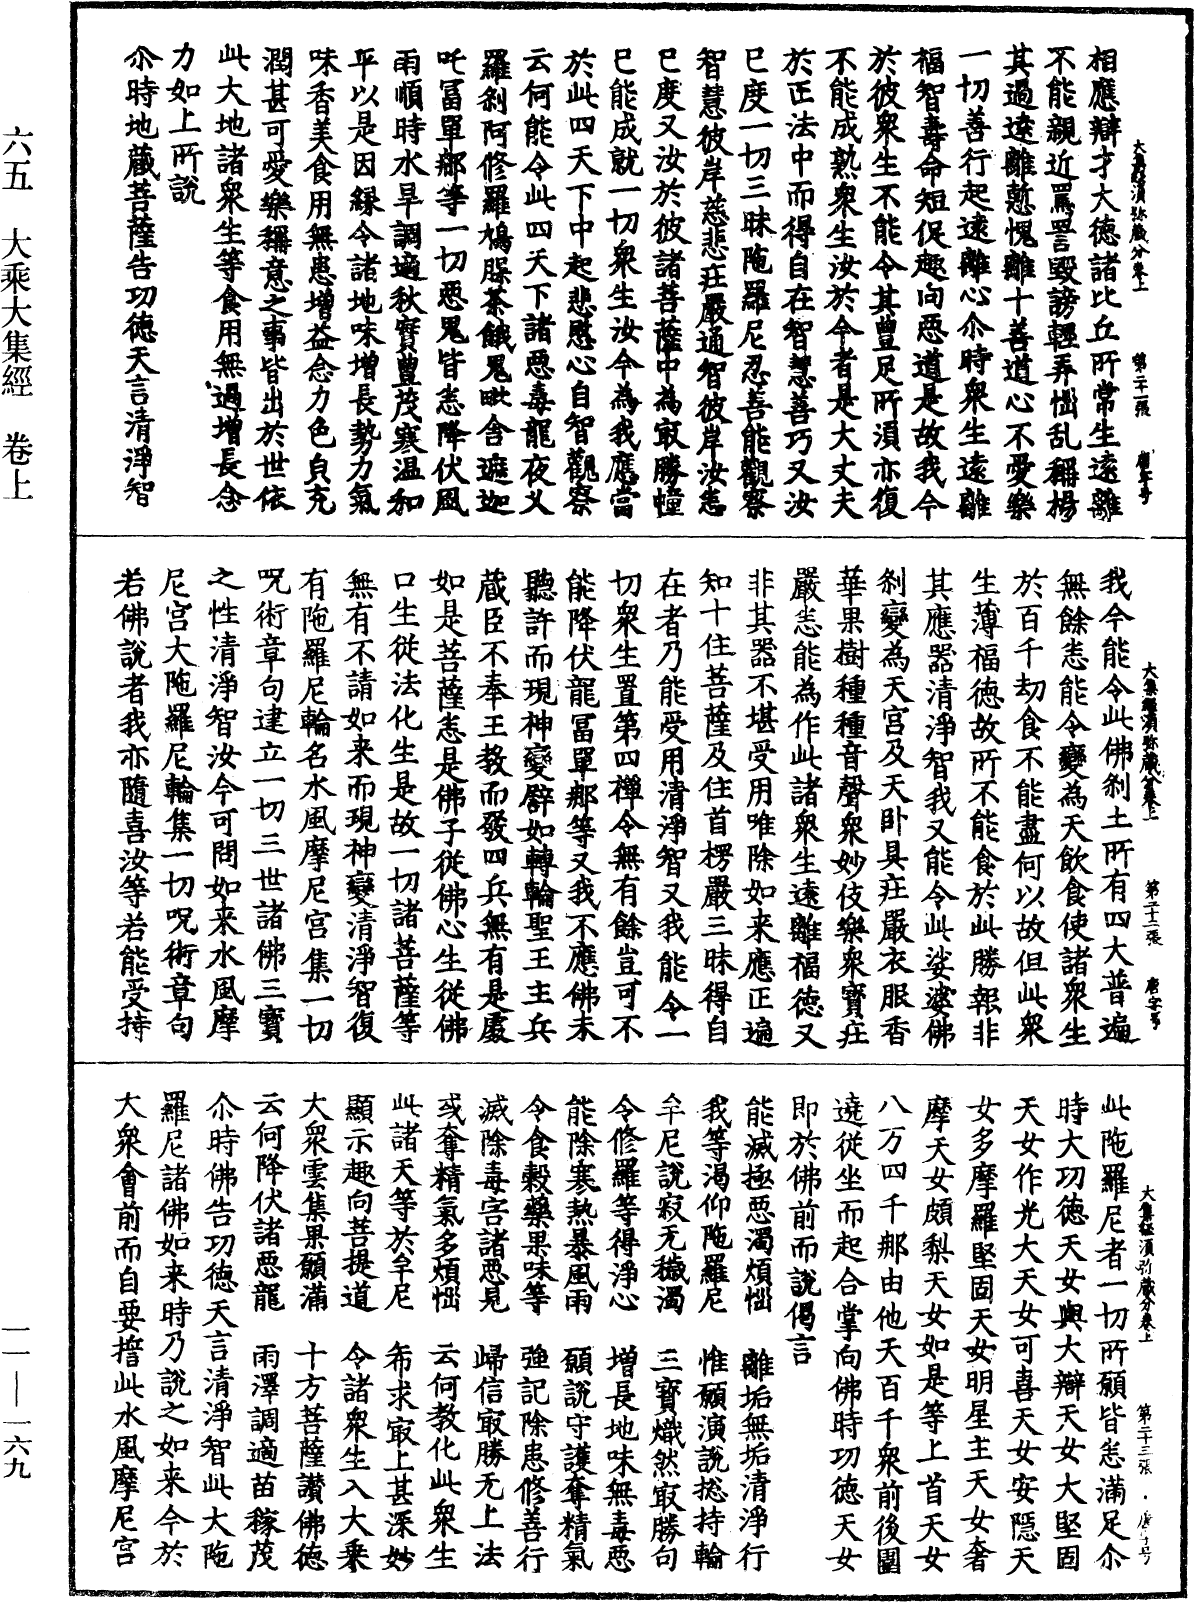 六五　大乘大集經　卷上
一一—一六九
大集經須弥蔵分卷上　第二十一張　唐字号
相應辯才大德諸比丘所常生遠離
不能親近罵詈毀謗輕弄惱乱稱揚
其過遠離慙愧離十善道心不愛樂
一切善行起遠離心尒時衆生遠離
福智壽命短促趣向惡道是故我今
於彼衆生不能令其豊足所湏亦復
不能成熟衆生汝於今者是大丈夫
於正法中而得自在智慧善巧又汝
已度一切三昧陁羅尼忍善能觀察
智慧彼岸慈悲庄嚴通智彼岸汝悉
已度又汝於彼諸菩薩中為㝡勝幢
已能成就一切衆生汝今為我應當
於此四天下中起悲愍心自智觀察
云何能令此四天下諸惡毒龍夜叉
羅刹阿修羅鳩䏶荼餓鬼毗舍遮迦
吒冨單那等一切惡鬼皆悉降伏風
雨順時水旱調適秋實豊茂寒温和
平以是因縁令諸地味增長勢力氣
味香美食用無患增益念力色㒵充
潤甚可愛樂稱意之事皆出於世依
此大地諸衆生等食用無過增長念
力如上所說
尒時地蔵菩薩告功德天言清淨智
大集經須弥蔵分卷上　第二十二張　唐字号
我今能令此佛刹土所有四大普遍
無餘悉能令變為天飲食使諸衆生
於百千劫食不能盡何以故但此衆
生薄福德故所不能食於此勝報非
其應器清淨智我又能令此娑婆佛
刹變為天宫及天卧具庄嚴衣服香
華果樹種種音聲衆妙伎樂衆寳庄
嚴悉能為作此諸衆生遠離福德又
非其器不堪受用唯除如来應正遍
知十住菩薩及住首楞嚴三昧得自
在者乃能受用清淨智又我能令一
切衆生置第四禪令無有餘豈可不
能降伏龍冨單那等又我不應佛未
聽許而現神變譬如轉輪聖王主兵
蔵臣不奉王教而發四兵無有是處
如是菩薩悉是佛子從佛心生從佛
口生從法化生是故一切諸菩薩等
無有不請如来而現神變清淨智復
有陁羅尼輪名水風摩尼宫集一切
呪術章句建立一切三世諸佛三寳
之性清淨智汝今可問如来水風摩
尼宫大陁羅尼輪集一切呪術章句
若佛說者我亦隨喜汝等若能受持
大集經須弥蔵分卷上　第二十三張　唐字号
此陁羅尼者一切所願皆悉滿足尒
時大功德天女與大辯天女大堅固
天女作光大天女可喜天女安隱天
女多摩羅堅固天女明星主天女奢
摩天女頗梨天女如是等上首天女
八万四千那由他天百千衆前後圍
遶從坐而起合掌向佛時功德天女
即於佛前而說偈言
能滅極惡濁煩惱　離垢無垢清淨行
我等渴仰陁羅尼　惟願演說捴持輪
牟尼說寂无穢濁　三寳熾然㝡勝句
令修羅等得淨心　增長地味無毒惡
能除寒熱暴風雨　願說守護奪精氣
令食穀藥果味等　強記除患修善行
滅除毒害諸惡見　歸信㝡勝无上法
或奪精氣多煩惱　云何教化此衆生
此諸天等於牟尼　希求㝡上甚深妙
顯示趣向菩提道　令諸衆生入大乘
大衆雲集果願滿　十方菩薩讚佛德
云何降伏諸惡龍　雨澤調適苗稼茂
尒時佛告功德天言清淨智此大陁
羅尼諸佛如来時乃說之如来今於
大衆會前而自要誓此水風摩尼宫